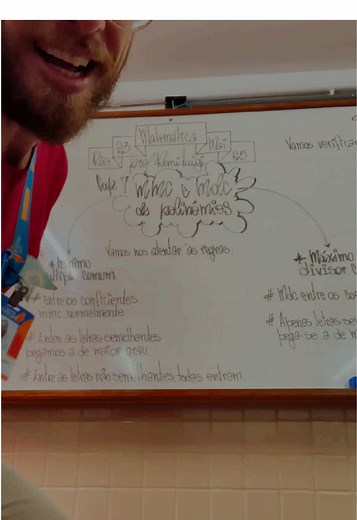 Matemática
23 Mai
pro Romilugi
25
Cap 7 MMC e MDC
de polinômios
Vamos verifica
Vamos nos atentar às regras
* Mínimo
múltiplo comum
* Máximo
divisor c
# entre os coeficientes
mmc normalmente
# Mdc entre os coe
# Entre as letras semelhantes
pegamos a de maior grau
# Apenas letras se
pega-se a de m
# Entre as letras não semelhantes, todas entram